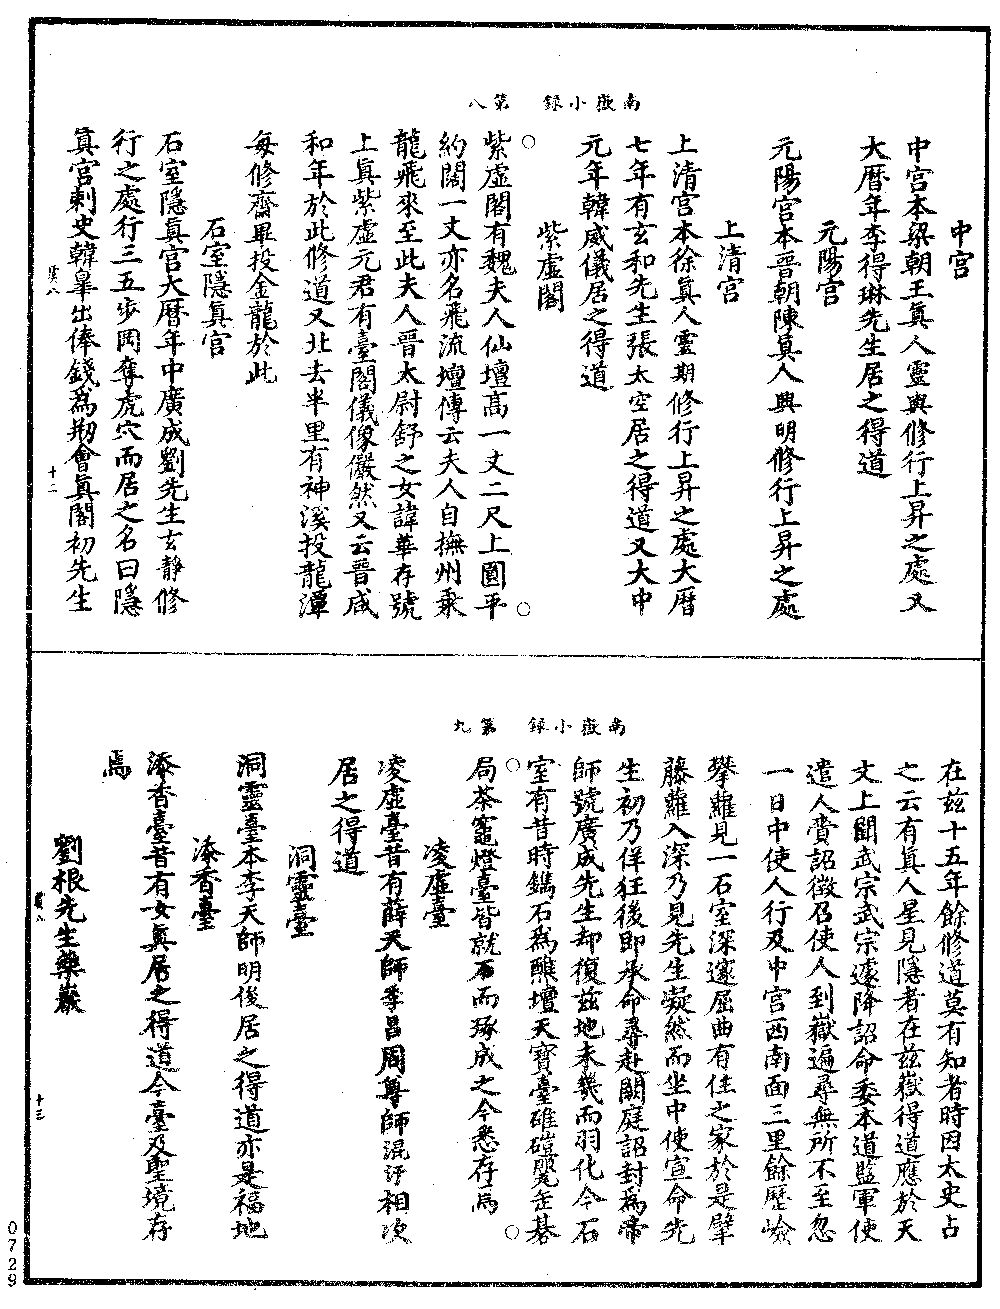 南嶽小録　第八
中宮
中宮本梁朝王真人靈輿修行上昇之處又
大曆年李得琳先生居之得道
元陽宮
元陽宮本晉朝陳真人興明修行上昇之處
上清宮
上清宮本徐真人靈期修行上昇之處大曆
七年有玄和先生張太空居之得道又大中
元年韓威儀居之得道
紫虛閣
紫虛閣有魏夫人仙壇高一丈二尺上圓平
約闊一丈亦名飛流壇傳云夫人自撫州乘
龍飛來至此夫人晉太尉舒之女諱華存號
上真紫虛元君有臺閣儀像儼然又云晉咸
和年於此修道又北去半里有神溪投龍潭
每修齋畢投金龍於此
石室隱真宮
石室隱真宮大曆年中廣成劉先生玄靜修
行之處行三五步岡奪虎穴而居之名曰隱
真宮刺史韓皋出俸錢為剏會真閣初先生
十二
南嶽小録　第九
在茲十五年餘修道莫有知者時因太史占
之云有真人星見隱者在茲嶽得道應於天
文上聞武宗武宗遽降詔命委本道監軍使
遣人賫詔徵召使人到嶽遍尋無所不至忽
一日中使人行及中宮西南面三里餘歷嶮
攀蘿見一石室深邃屈曲有住之家於是擘
藤蘿入深乃見先生凝然而坐中使宣命先
生初乃佯狂後即承命尋赴闕庭詔封為帝
師號廣成先生却復茲地未幾而羽化今石
室有昔時鐫石為醮壇天寶臺碓磑甕缶碁
局茶竈燈臺皆就石而琢成之今悉存焉
凌虛臺
凌虛臺昔有薛天師季昌周尊師混汙相次
居之得道
洞靈臺
洞靈臺本李天師明後居之得道亦是福地
添香臺
添香臺昔有女真居之得道今臺及聖境存
焉
劉根先生藥巖
十三
0729